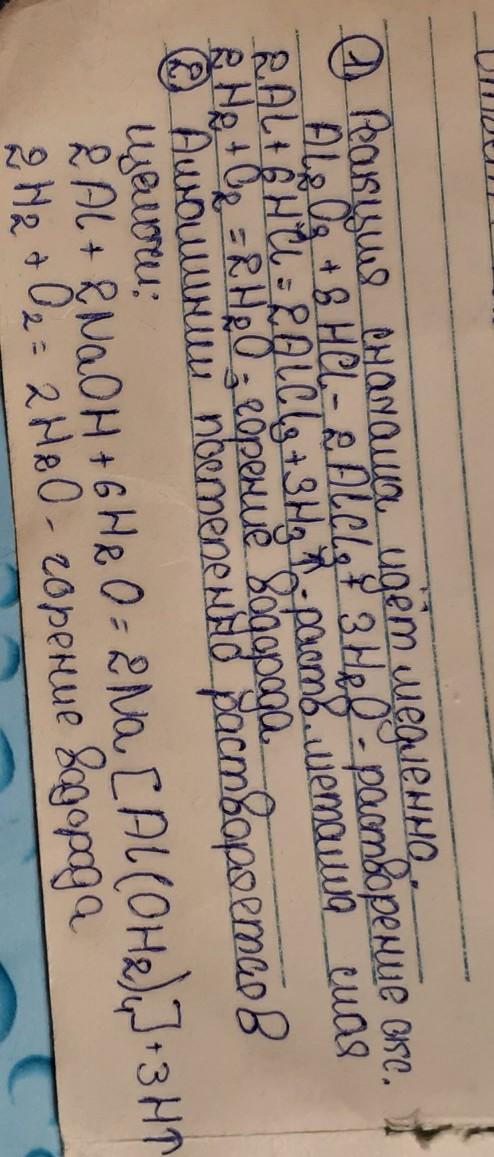 ① Реакция сначала идёт медленно.
Al₂O₃ + 6HCl - 2AlCl₃ + 3H₂O - растворение окс.
2Al + 6HCl = 2AlCl₃ + 3H₂↑ - раств. металла слоя
2H₂ + O₂ = 2H₂O - горение водорода
② Алюминии постепенно растворяется в
щелочи:
2Al + 2NaOH + 6H₂O = 2Na[Al(OH₂)₄] + 3H↑
2H₂ + O₂ = 2H₂O - горение водорода